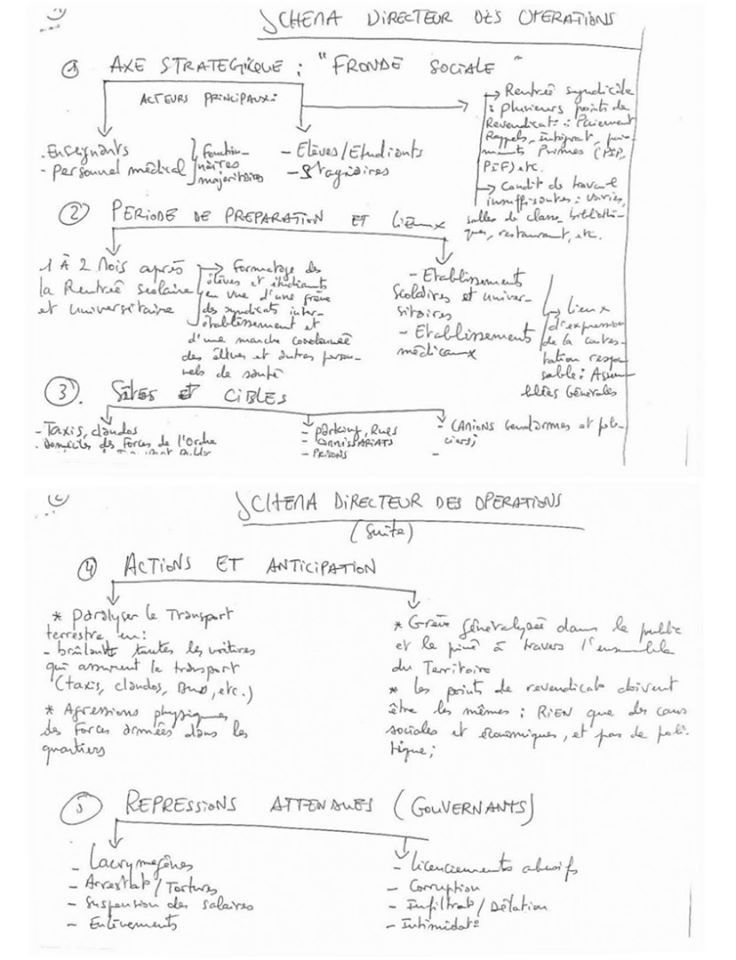 SCHEMA DIRECTEUR DES OPERATIONS
① AXE STRATEGIQUE : "FRONDE SOCIALE"
ACTEURS PRINCIPAUX:
- Enseignants
- Personnel médical
Fonction-
naires
majoritaires
- Elèves/Etudiants
- Stagiaires
→ Rentrée syndicale
: plusieurs points de
Revendicat° : Paiement
Rappels, Intégrat°, paie-
ments Primes (PIP,
PIF) etc.
→ Condit° de travail
insuffisantes :
salles de classe, bibliothè-
ques, restaurant, etc.
② PERIODE DE PREPARATION ET LIEUX
1 À 2 Mois après
la Rentrée scolaire
et universitaire
→ Formatage des
élèves et étudiants
en vue d'une grève
des syndicats inter-
établissement et
d'une marche
des élèves et autres person-
nels de santé
- Etablissements
Scolaires et univer-
sitaires
- Etablissements
médicaux
→ Lieux
d'expression
de la contes-
tation respon
sable : Assem
blées Générales
③. Sites et CIBLES
- Taxis, clandos
- Domiciles des Forces de l'Ordre
- parking, Rues
- COMMISSARIATS
- PRISONS
- CAMIONS Gendarmes et poli-
ciers;
-
SCHEMA DIRECTEUR DES OPERATIONS
(Suite)
④ ACTIONS ET ANTICIPATION
* Paralyser le Transport
terrestre en :
- brûlant toutes les voitures
qui assurent le transport
(taxis, clandos, Bus, etc.)
* Agressions physiques
des Forces armées dans les
quartiers
* Grève généralisée dans le public
et le privé à travers l'ensemble
du Territoire
* Les points de revendicat° doivent
être les mêmes : RIEN que des cas
sociales et économiques, et pas de poli-
tique;
⑤ REPRESSIONS ATTENDUES (GOUVERNANTS)
- Lacrymogènes
- Arrestat°/Tortures
- Suspension des salaires
- Enlèvements
- Licenciements abusifs
- Corruption
- Infiltrat°/Délation
- Intimidat°